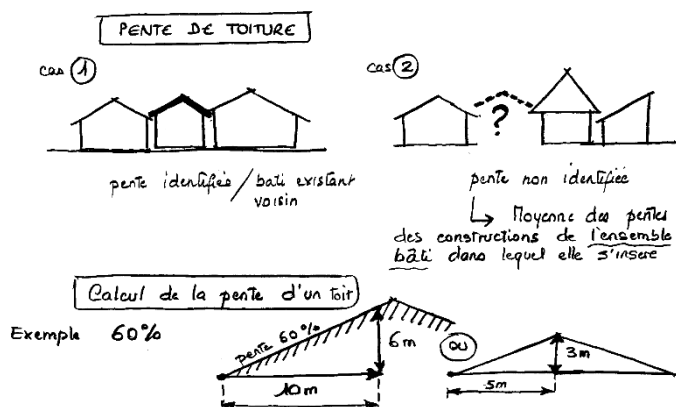 PENTE DE TOITURE
cas 1
cas 2
?
pente identifiée / bati existant
voisin
pente non identifiée
Moyenne des pentes
des constructions de l'ensemble
bâti dans lequel elle s'insere
Calcul de la pente d'un toit
Exemple 60%
pente 60%
6m
10m
ou
3m
5m